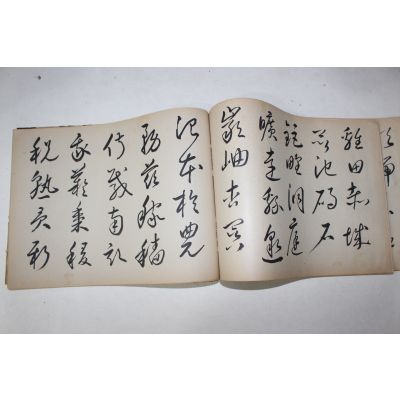 雞田赤城
昆池碣石
鉅野洞庭
曠遠綿邈
巖岫杳冥
治本於農
務茲稼穡
俶載南畝
我藝黍稷
稅熟貢新